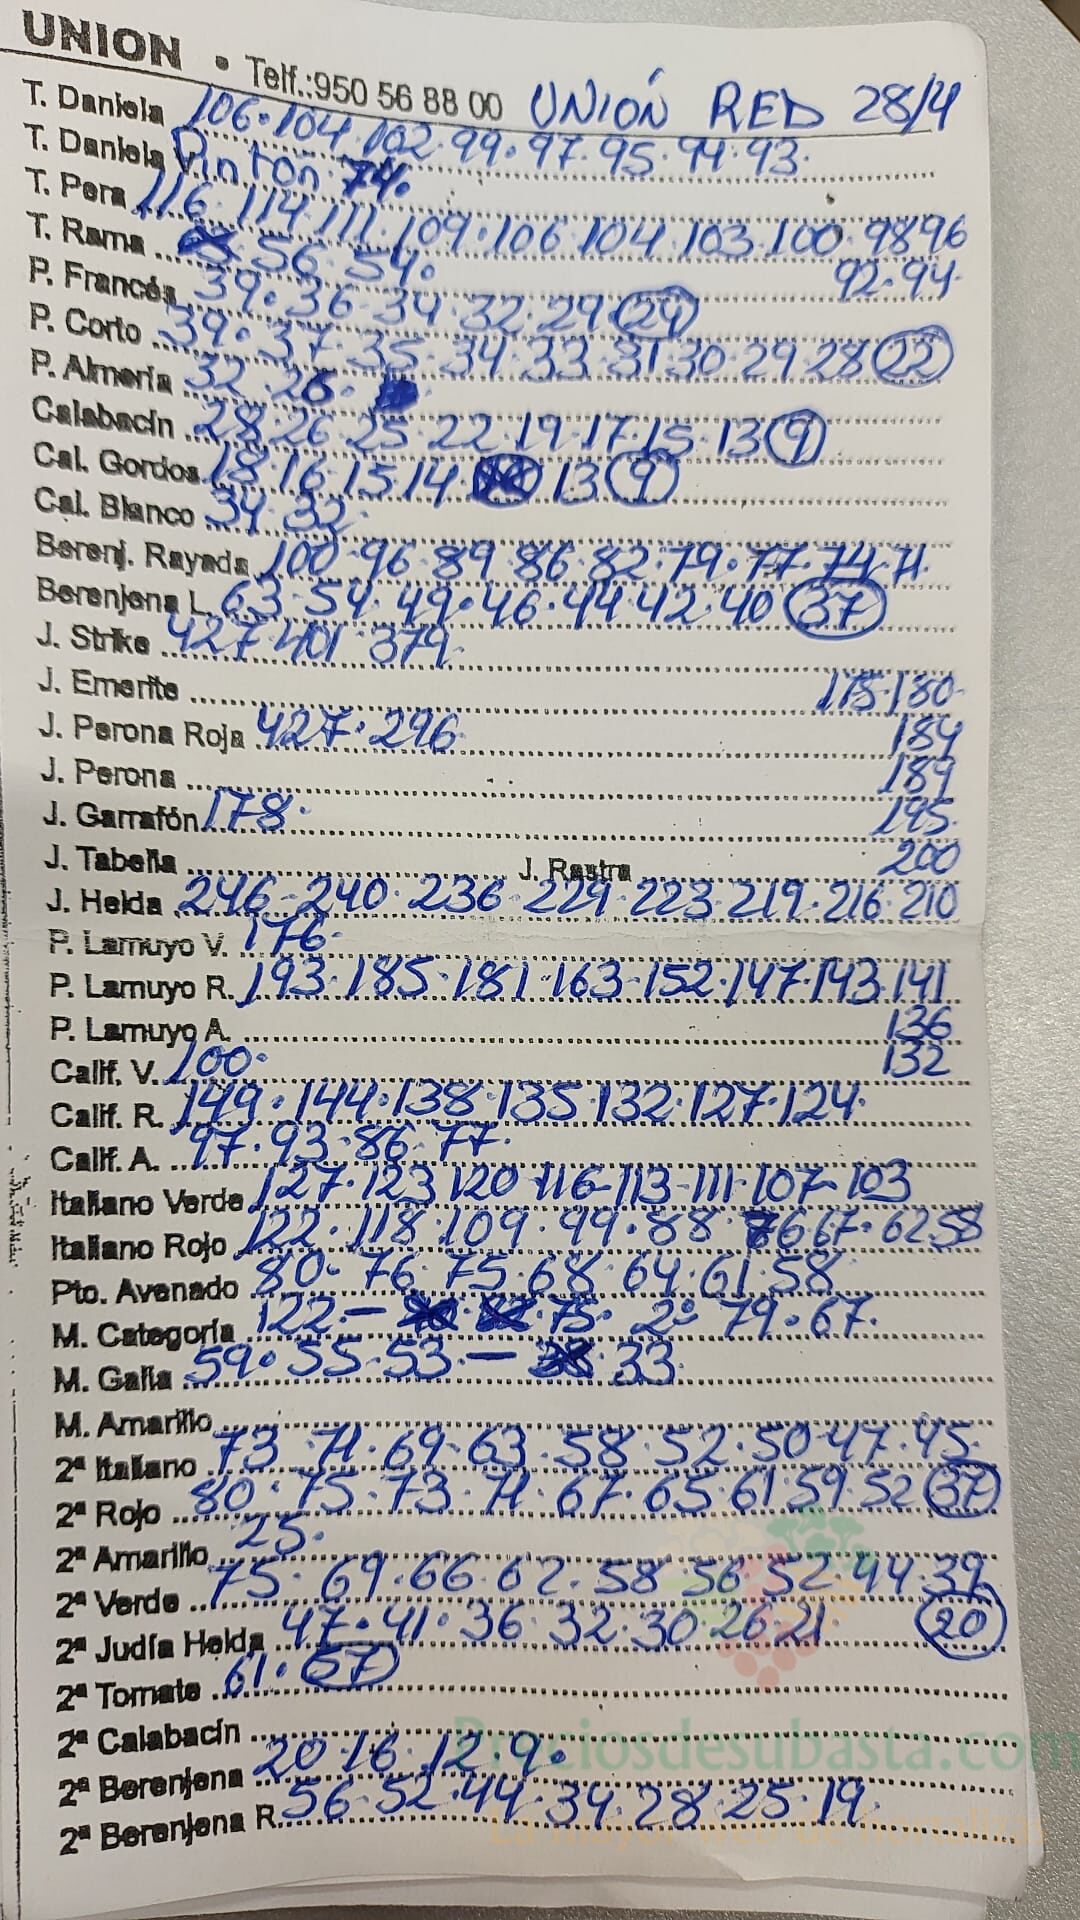 UNION • Telf.:950 56 88 00 UNIÓN RED 28/4
T. Daniela 106·104·102·99·97·95·94·93·
T. Daniela V. Pintón·74·
T. Pera 116·114·111·109·106·104·103·100·98 96
92·94·
T. Rama 56·54·
P. Francés 39·36·34·32·29 (24)
P. Corto 39·37·35·34·33·31 30·29·28 (22)
P. Almería 32·26·
Calabacín 28·26·25·22·19·17·15·13 (9)
Cal. Gordos 18·16·15·14· 13 (9)
Cal. Blanco 34·32·
Berenj. Rayada 100·96·89·86·82·79·77·74·71·
Berenjena L. 63·54·49·46·44·42·40 (37)
J. Strike 427·401·379·
J. Emerite 175·180·
J. Perona Roja 427·296 184
J. Perona 189
J. Garrafón 178· 195·
J. Tabella J. Rastra 200
J. Helda 246·240·236·229·223·219·216·210
P. Lamuyo V. 176·
P. Lamuyo R. 193·185·181·163·152·147·143·141
P. Lamuyo A. 136
132
Calif. V. 100·
Calif. R. 149·144·138·135·132·127·124·
Calif. A. 97·93·86·77·
Italiano Verde 127·123 120·116-113-111-107-103
Italiano Rojo 122·118·109·99·88·76 67·62 58
Pto. Avenado 80·76·75·68·64·61·58
M. Categoría 122·— 75· 2ª 79·67·
M. Galia 59·55·53·— 33·
M. Amarillo
2ª Italiano 73·71·69·63·58·52·50·47·45
2ª Rojo 80·75·73·71·67·65·61·59·52 (37)
2ª Amarillo 25·
2ª Verde 75·69·66·62·58·56·52·44·39
2ª Judía Helda 47·41·36·32·30·26·21 (20)
2ª Tomate 61· (57)
2ª Calabacín
2ª Berenjena 20·16·12·9·
2ª Berenjena R. 56·52·44·34·28·25·19
Preciosdesubasta.com
La mayor web de hortalizas